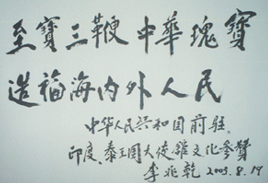 至寶三鞭中華瑰寶
造福海内外人民
中华人民共和国前驻
印度泰王国大使馆文化参赞
李兆乾 2003.8.19